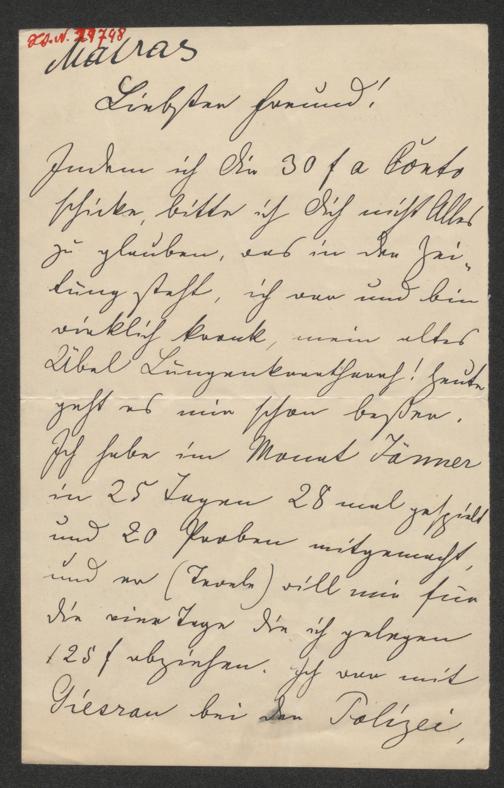 I.N. 29748
Matras
Liebster Freund!
Indem ich Dir 30 f a Conto
schicke, bitte ich Dich nicht Alles
zu glauben, was in der Zei-
tung steht, ich war und bin
wirklich krank, mein altes
Übel Lungenkatharrh! heute
geht es mir schon beßer.
Ich habe im Monat Jänner
in 25 Tagen 28 mal gespielt
und 20 Proben mitgemacht,
und er will mir für
die vier Tage die ich gelegen
125 f abziehen. Ich war mit
bei der Polizei,